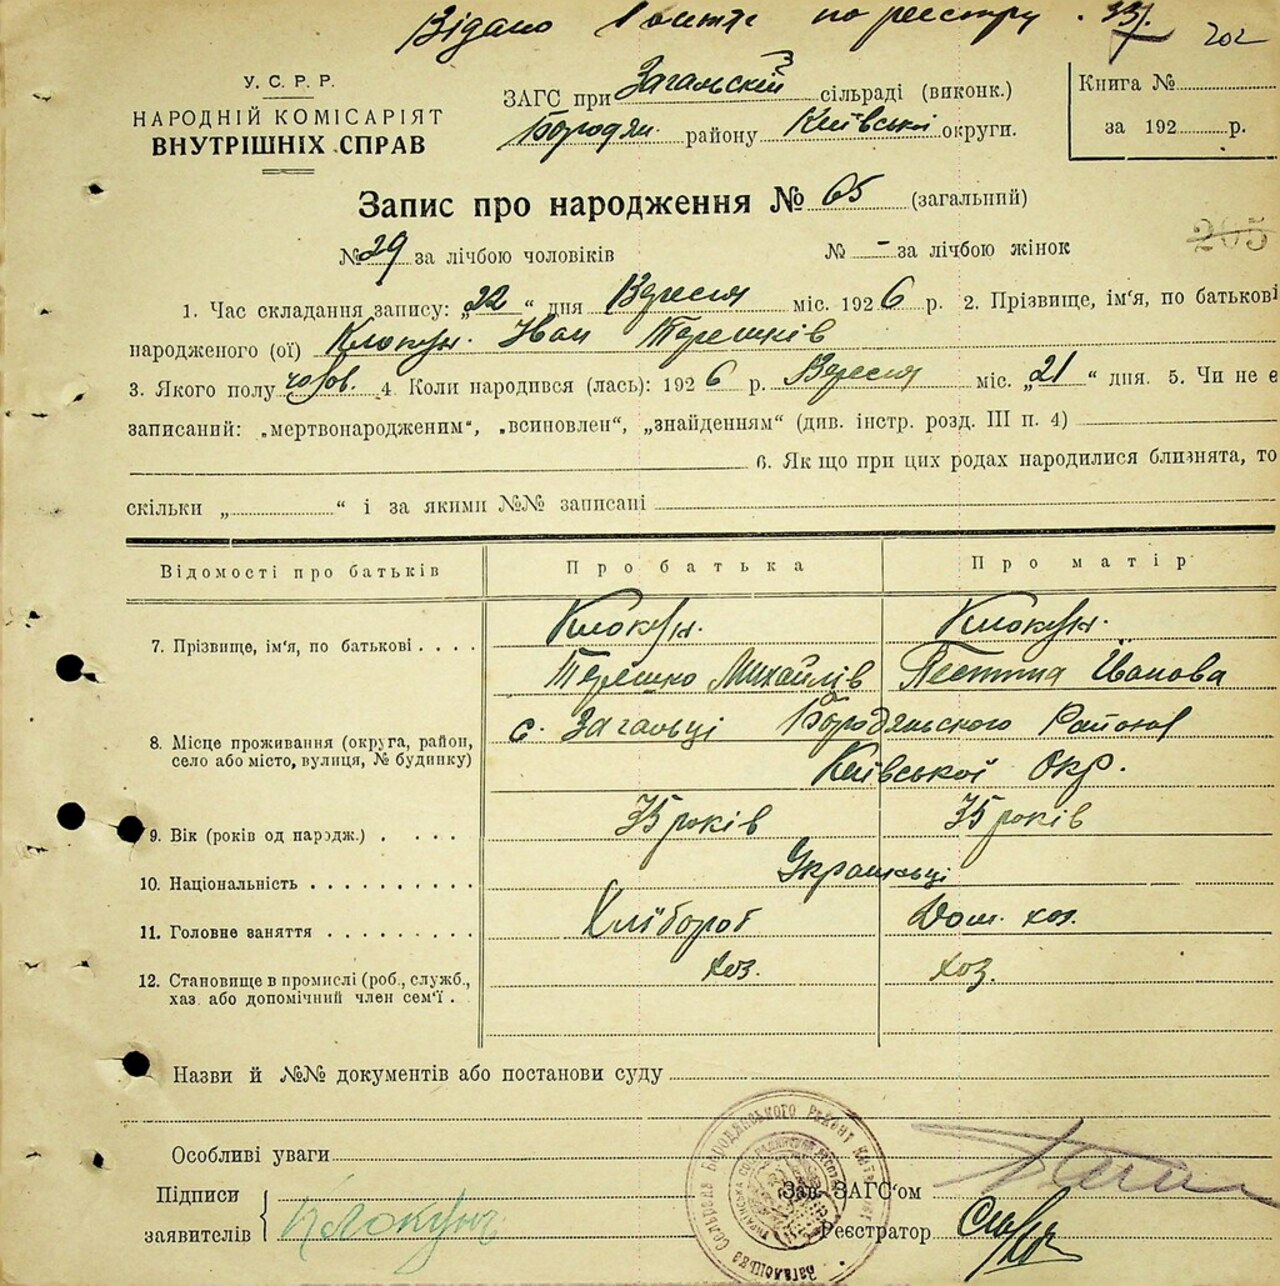 Видано по реєстру 33/7 202
У. С. Р. Р.
НАРОДНІЙ КОМІСАРІЯТ
ВНУТРІШНІХ СПРАВ
ЗАГС при Загальскій сільраді (виконк.)
Бородян. району Київської округи.
Книга №
за 192 р.
Запис про народження № 65 (загальний)
205
№ 29 за лічбою чоловіків № - за лічбою жінок
1. Час складання запису: „22“ дня Вересня міс. 1926 р. 2. Прізвище, ім‘я, по батькові
народженого (ої) Клокун. Іван Терешків
3. Якого полу чолов. 4. Коли народився (лась): 1926 р. Вересня міс. „21“ дня. 5. Чи не є
записаний: „мертвонародженим“, „всиновлен“, „знайденням“ (див. інстр. розд. III п. 4)
6. Як що при цих родах народилися близнята, то
скільки „ “ і за якими №№ записані
Відомості про батьків Про батька Про матір
7. Прізвище, ім‘я, по батькові . . . . Клокун. Клокун.
Терешко Михайлів Іванова
8. Місце проживання (округа, район, с. Загальці Бородянського Району
село або місто, вулиця, № будинку) Київської Окр.
9. Вік (років од народж.) . . . . 35 років 35 років
10. Національність . . . . . . . . . . Українці
11. Головне заняття . . . . . . . . . Хлібороб Дом. хоз.
12. Становище в промислі (роб., служб., хоз. хоз.
хаз. або допомічний член сем‘ї .
Назви й №№ документів або постанови суду
Особливі уваги
Підписи
заявителів Клокун
Зав. ЗАГС‘ом
Реєстратор